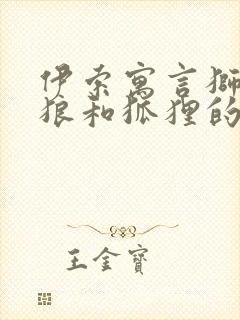 伊索寓言獅
狼和狐狸的
王金寶